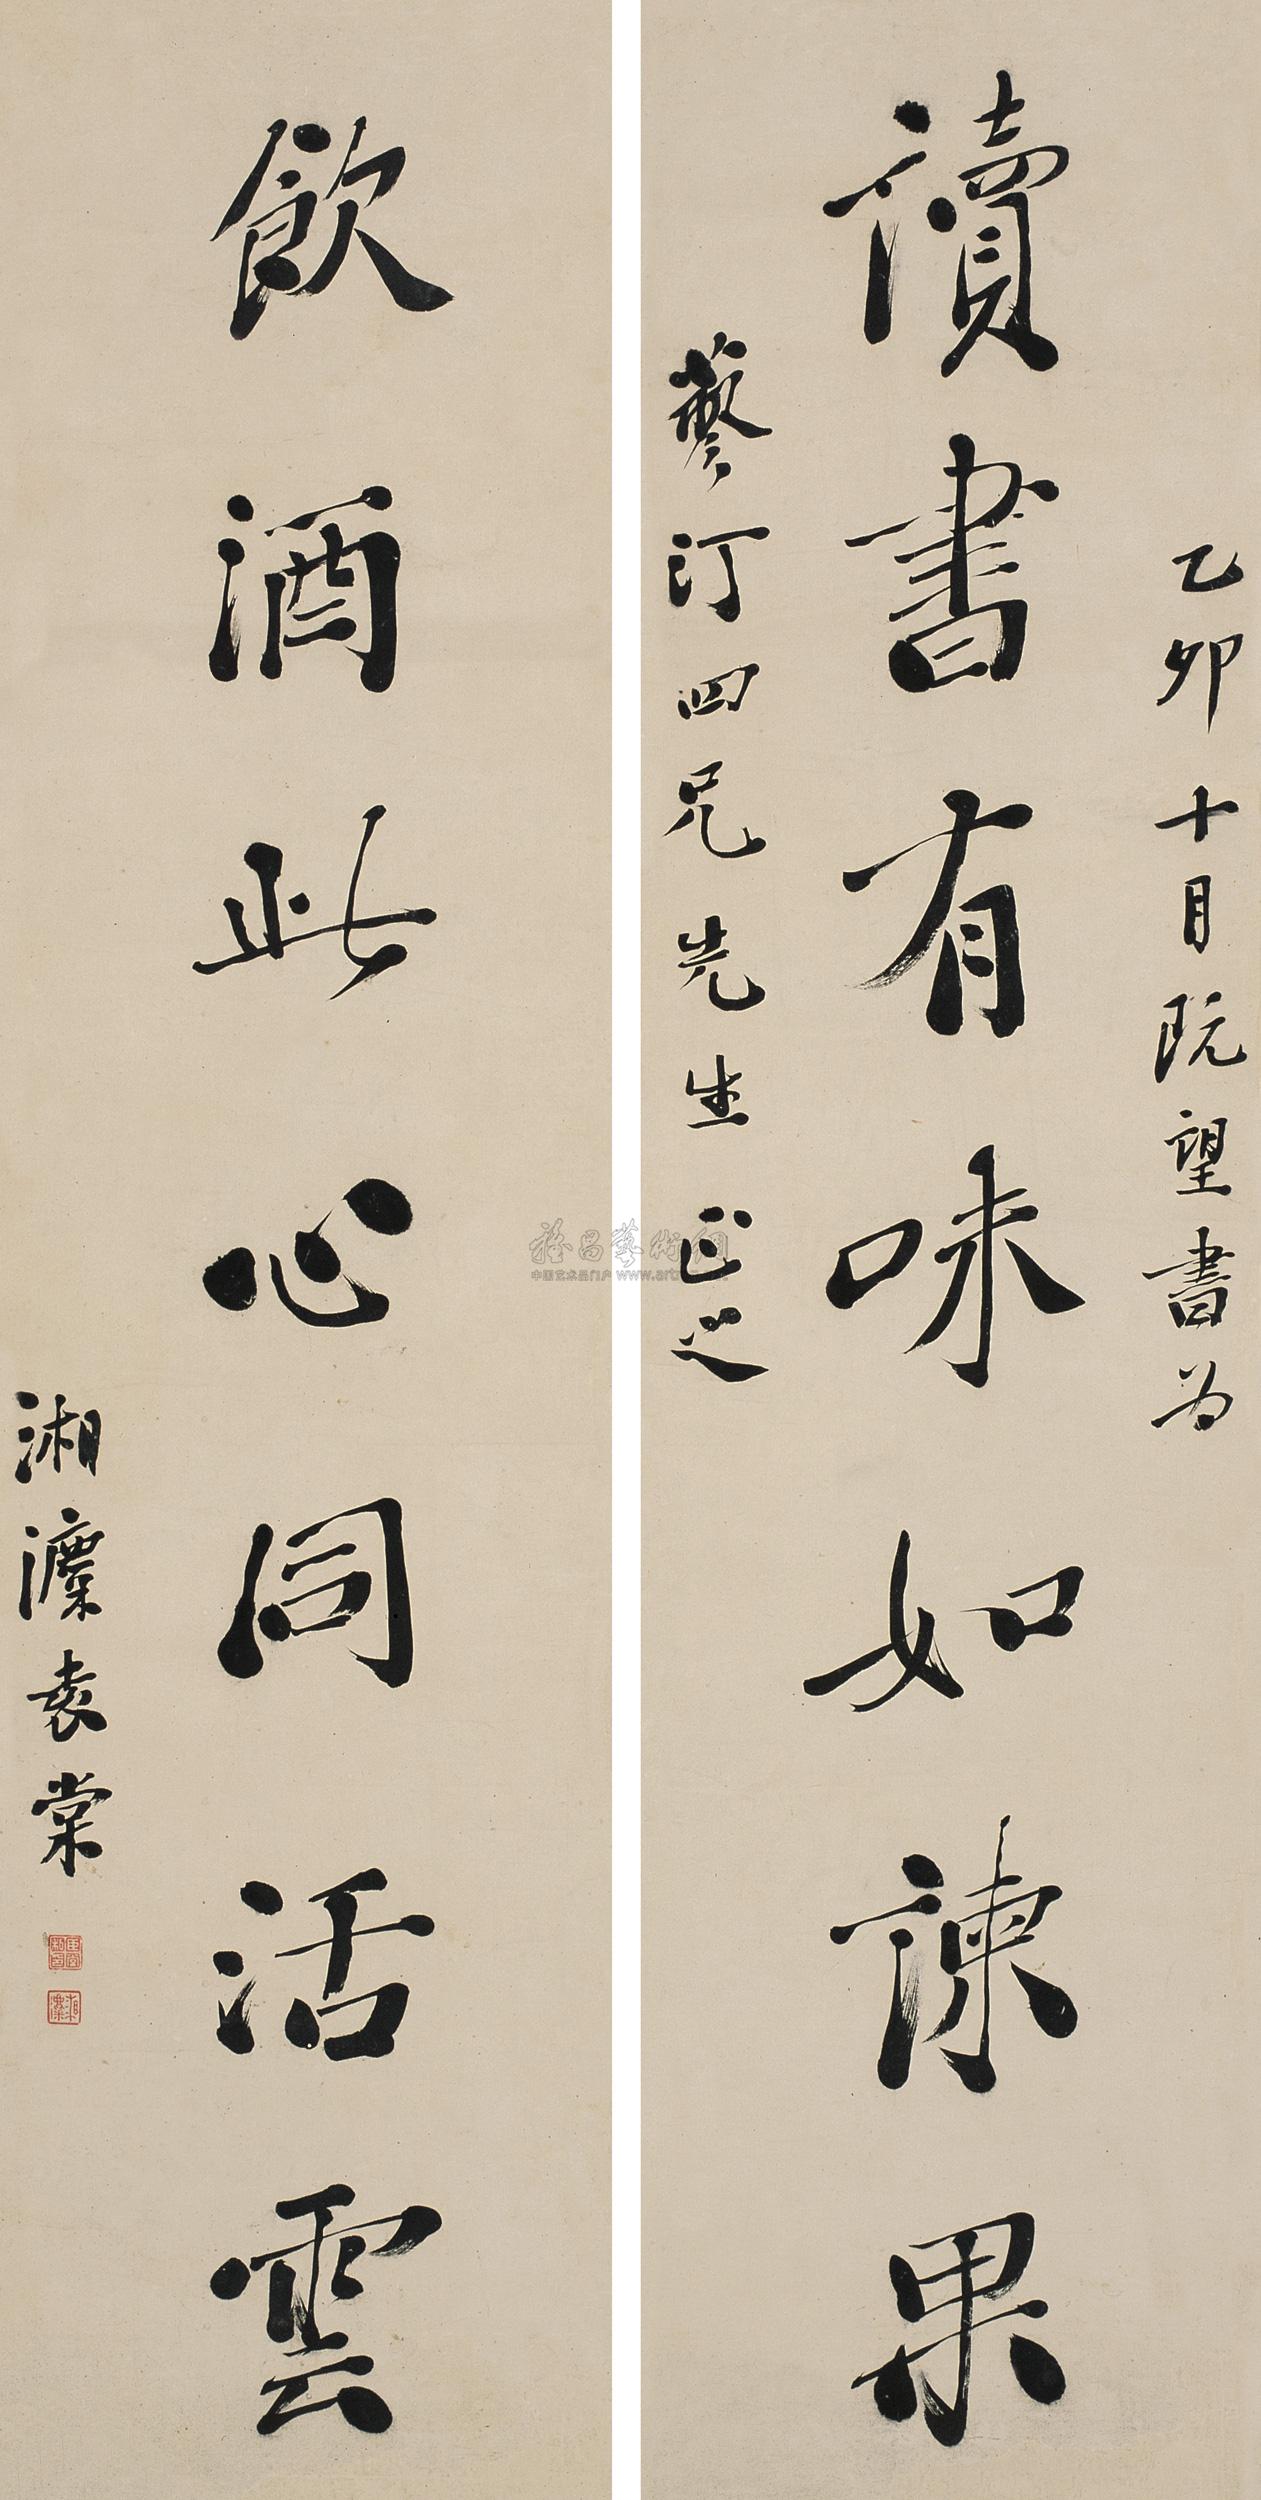 乙卯十月既望書為
讀書有味如諫果
蓼汀四兄先生正之
飲酒此心同活雲
湘澐袁棠
雅昌藝術網
中国艺术品门户 www.artron.net